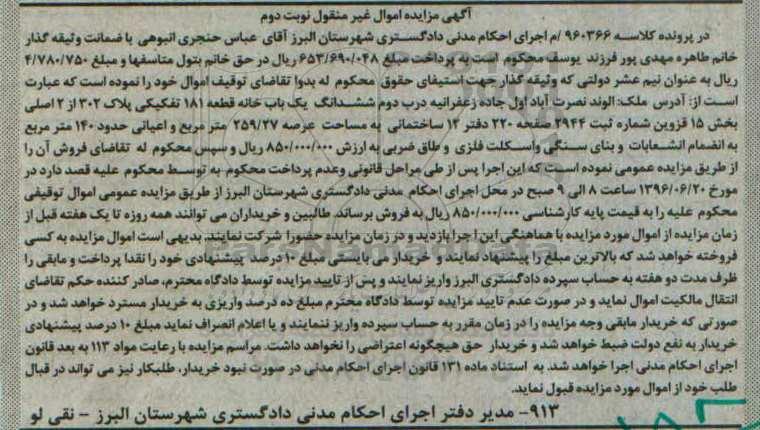 آگهی مزایده اموال غیر منقول نوبت دوم
در پرونده کلاسه ۹۶۰۳۶۶ /م اجرای احکام مدنی دادگستری شهرستان البرز آقای عباس حنجری انبوهی با ضمانت وثیقه گذار
خانم طاهره مهدی پور فرزند یوسف محکوم است به پرداخت مبلغ ۶۵۳/۶۹۰/۰۴۸ ریال در حق خانم بتول متاسفها و مبلغ ۴/۷۸۰/۷۵۰
ریال به عنوان نیم عشر دولتی که وثیقه گذار جهت استیفای حقوق محکوم له بدوا تقاضای توقیف اموال خود را نموده است که عبارت
است از: آدرس ملک: الوند نصرت آباد اول جاده زعفرانیه درب دوم ششدانگ یک باب خانه قطعه ۱۸۱ تفکیکی پلاک ۳۰۲ از ۲ اصلی
بخش ۱۵ قزوین شماره ثبت ۲۹۴۴ صفحه ۲۲۰ دفتر ۱۲ ساختمانی به مساحت عرصه ۲۵۹/۲۷ متر مربع و اعیانی حدود ۱۴۰ متر مربع
به انضمام انشعابات و بنای سنگی واسکلت فلزی و طاق ضربی به ارزش ۸۵۰/۰۰۰/۰۰۰ ریال و سپس محکوم له تقاضای فروش آن را
از طریق مزایده عمومی نموده است که این اجرا پس از طی مراحل قانونی وعدم پرداخت محکوم به توسط محکوم علیه قصد دارد در
مورخ ۱۳۹۶/۰۶/۲۰ ساعت ۸ الی ۹ صبح در محل اجرای احکام مدنی دادگستری شهرستان البرز از طریق مزایده عمومی اموال توقیفی
محکوم علیه را به قیمت پایه کارشناسی ۸۵۰/۰۰۰/۰۰۰ ریال به فروش برساند. طالبین و خریداران می توانند همه روزه تا یک هفته قبل از
زمان مزایده از اموال مورد مزایده با هماهنگی این اجرا بازدید و در زمان مزایده حضورا شرکت نمایند. بدیهی است اموال مزایده به کسی
فروخته خواهد شد که بالاترین مبلغ را پیشنهاد نمایند و خریدار می بایستی مبلغ ۱۰ درصد پیشنهادی خود را نقدا پرداخت و مابقی را
ظرف مدت دو هفته به حساب سپرده دادگستری البرز واریز نمایند و پس از تایید مزایده توسط دادگاه محترم، صادر کننده حکم تقاضای
انتقال مالکیت اموال نماید و در صورت عدم تایید مزایده توسط دادگاه محترم مبلغ ده درصد واریزی به خریدار مسترد خواهد شد و در
صورتی که خریدار مابقی وجه مزایده را در زمان مقرر به حساب سپرده واریز ننمایند و یا اعلام انصراف نماید مبلغ ۱۰ درصد پیشنهادی
خریدار به نفع دولت ضبط خواهد شد و خریدار حق هیچگونه اعتراضی را نخواهد داشت. مراسم مزایده با رعایت مواد ۱۱۳ به بعد قانون
اجرای احکام مدنی اجرا خواهد شد. به استناد ماده ۱۳۱ قانون اجرای احکام مدنی در صورت نبود خریدار، طلبکار نیز می تواند در قبال
طلب خود از اموال مورد مزایده قبول نماید.
۹۱۳- مدیر دفتر اجرای احکام مدنی دادگستری شهرستان البرز - نقی لو